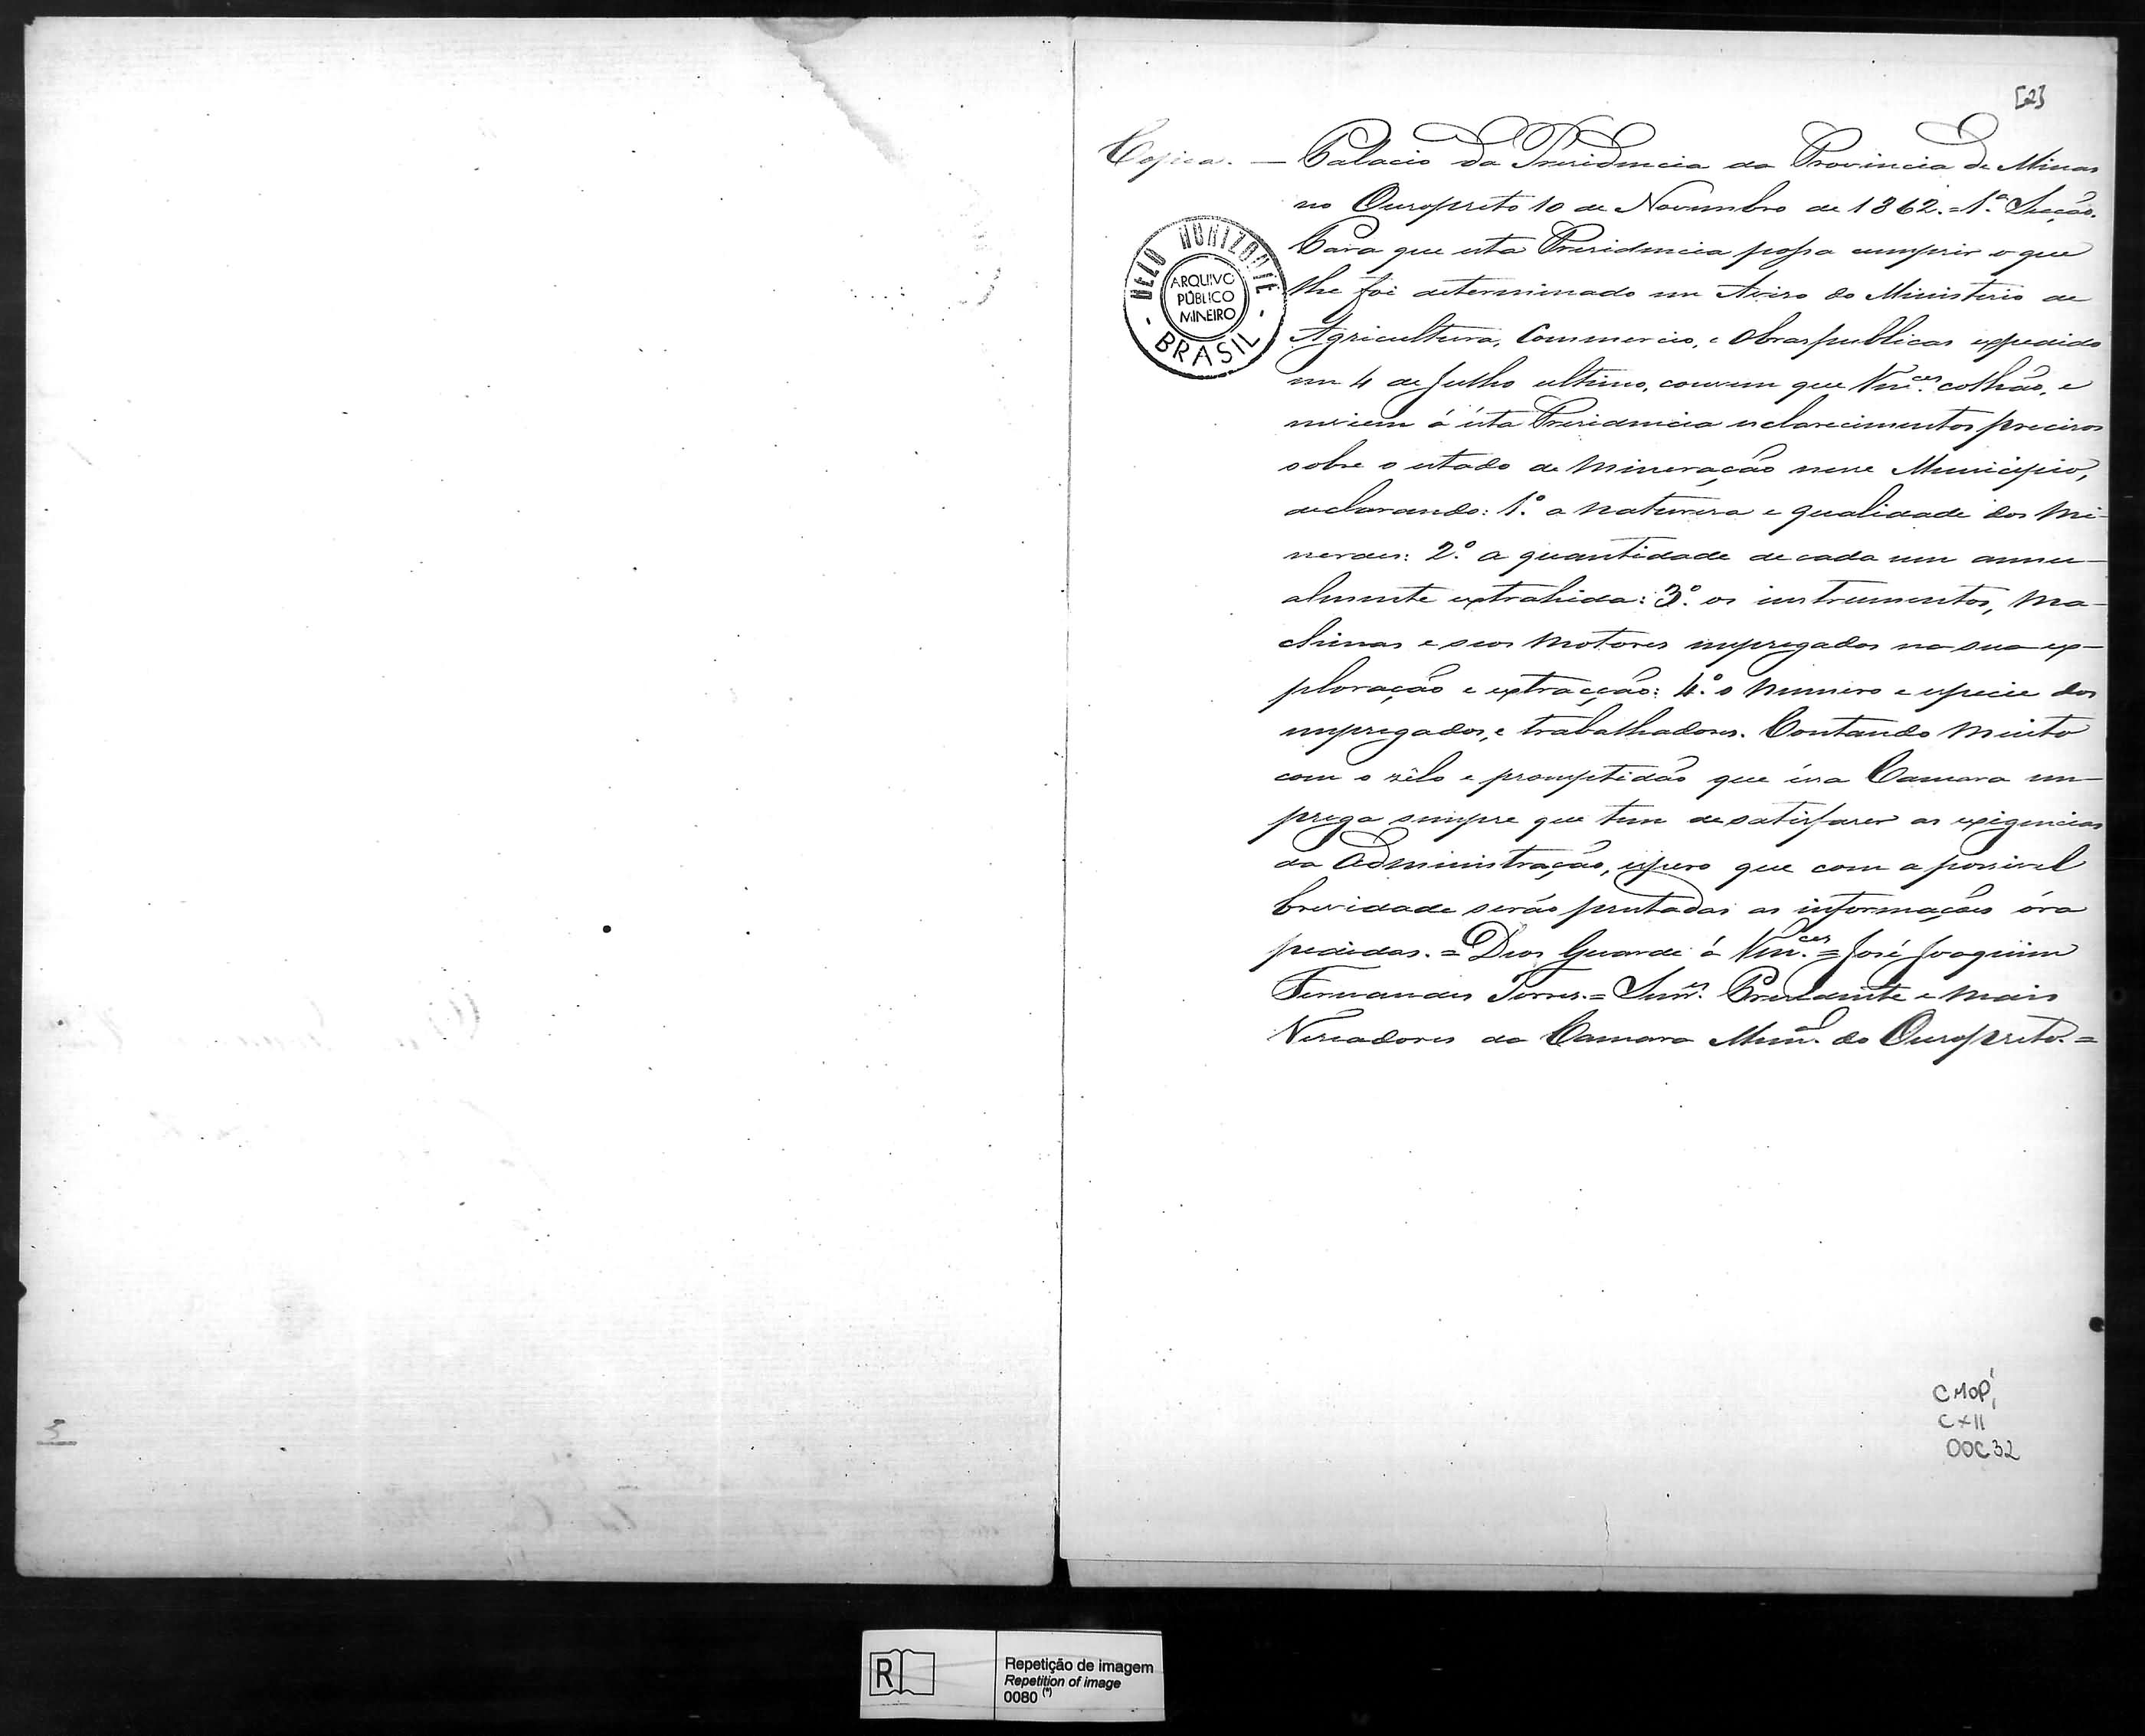 [2]
Copia. — Palacio da Presidencia da Provincia de Minas
no Ouropreto 10 de Novembro de 1862. = 1.ª Secção.
Para que esta Presidencia possa cumprir o que
lhe foi determinado em Aviso do Ministerio de
Agricultura, Commercio, e Obras publicas expedido
em 4 de Julho ultimo, convem que Vm.ces colhão, e
enviem á ésta Presidencia esclarecimentos precisos
sobre o estado de mineração nesse Municipio,
declarando: 1.º a naturesa e qualidade dos mi-
neraes: 2.º a quantidade de cada um annu-
almente extrahida: 3.º os instrumentos, ma-
chinas e seos motores empregados na sua ex-
ploração e extracção: 4.º o numero e especie dos
empregados, e trabalhadores. Contando muito
com o zêlo e promptidão que éssa Camara em-
prega sempre que tem de satisfaser as exigencias
da Administração, espero que com a possivel
brevidade serão prestadas as informações óra
pedidas. = Deos Guarde á Vm.ces = José Joaquim
Fernandes Torres. = Snr.es Presidente e mais
Vereadores da Camara Mun.al do Ouropreto. =
BELO HORIZONTE
ARQUIVO
PÚBLICO
MINEIRO
- BRASIL -
3
CMOP,
CXII
DOC 32
R
Repetição de imagem
Repetition of image
0080 (*)